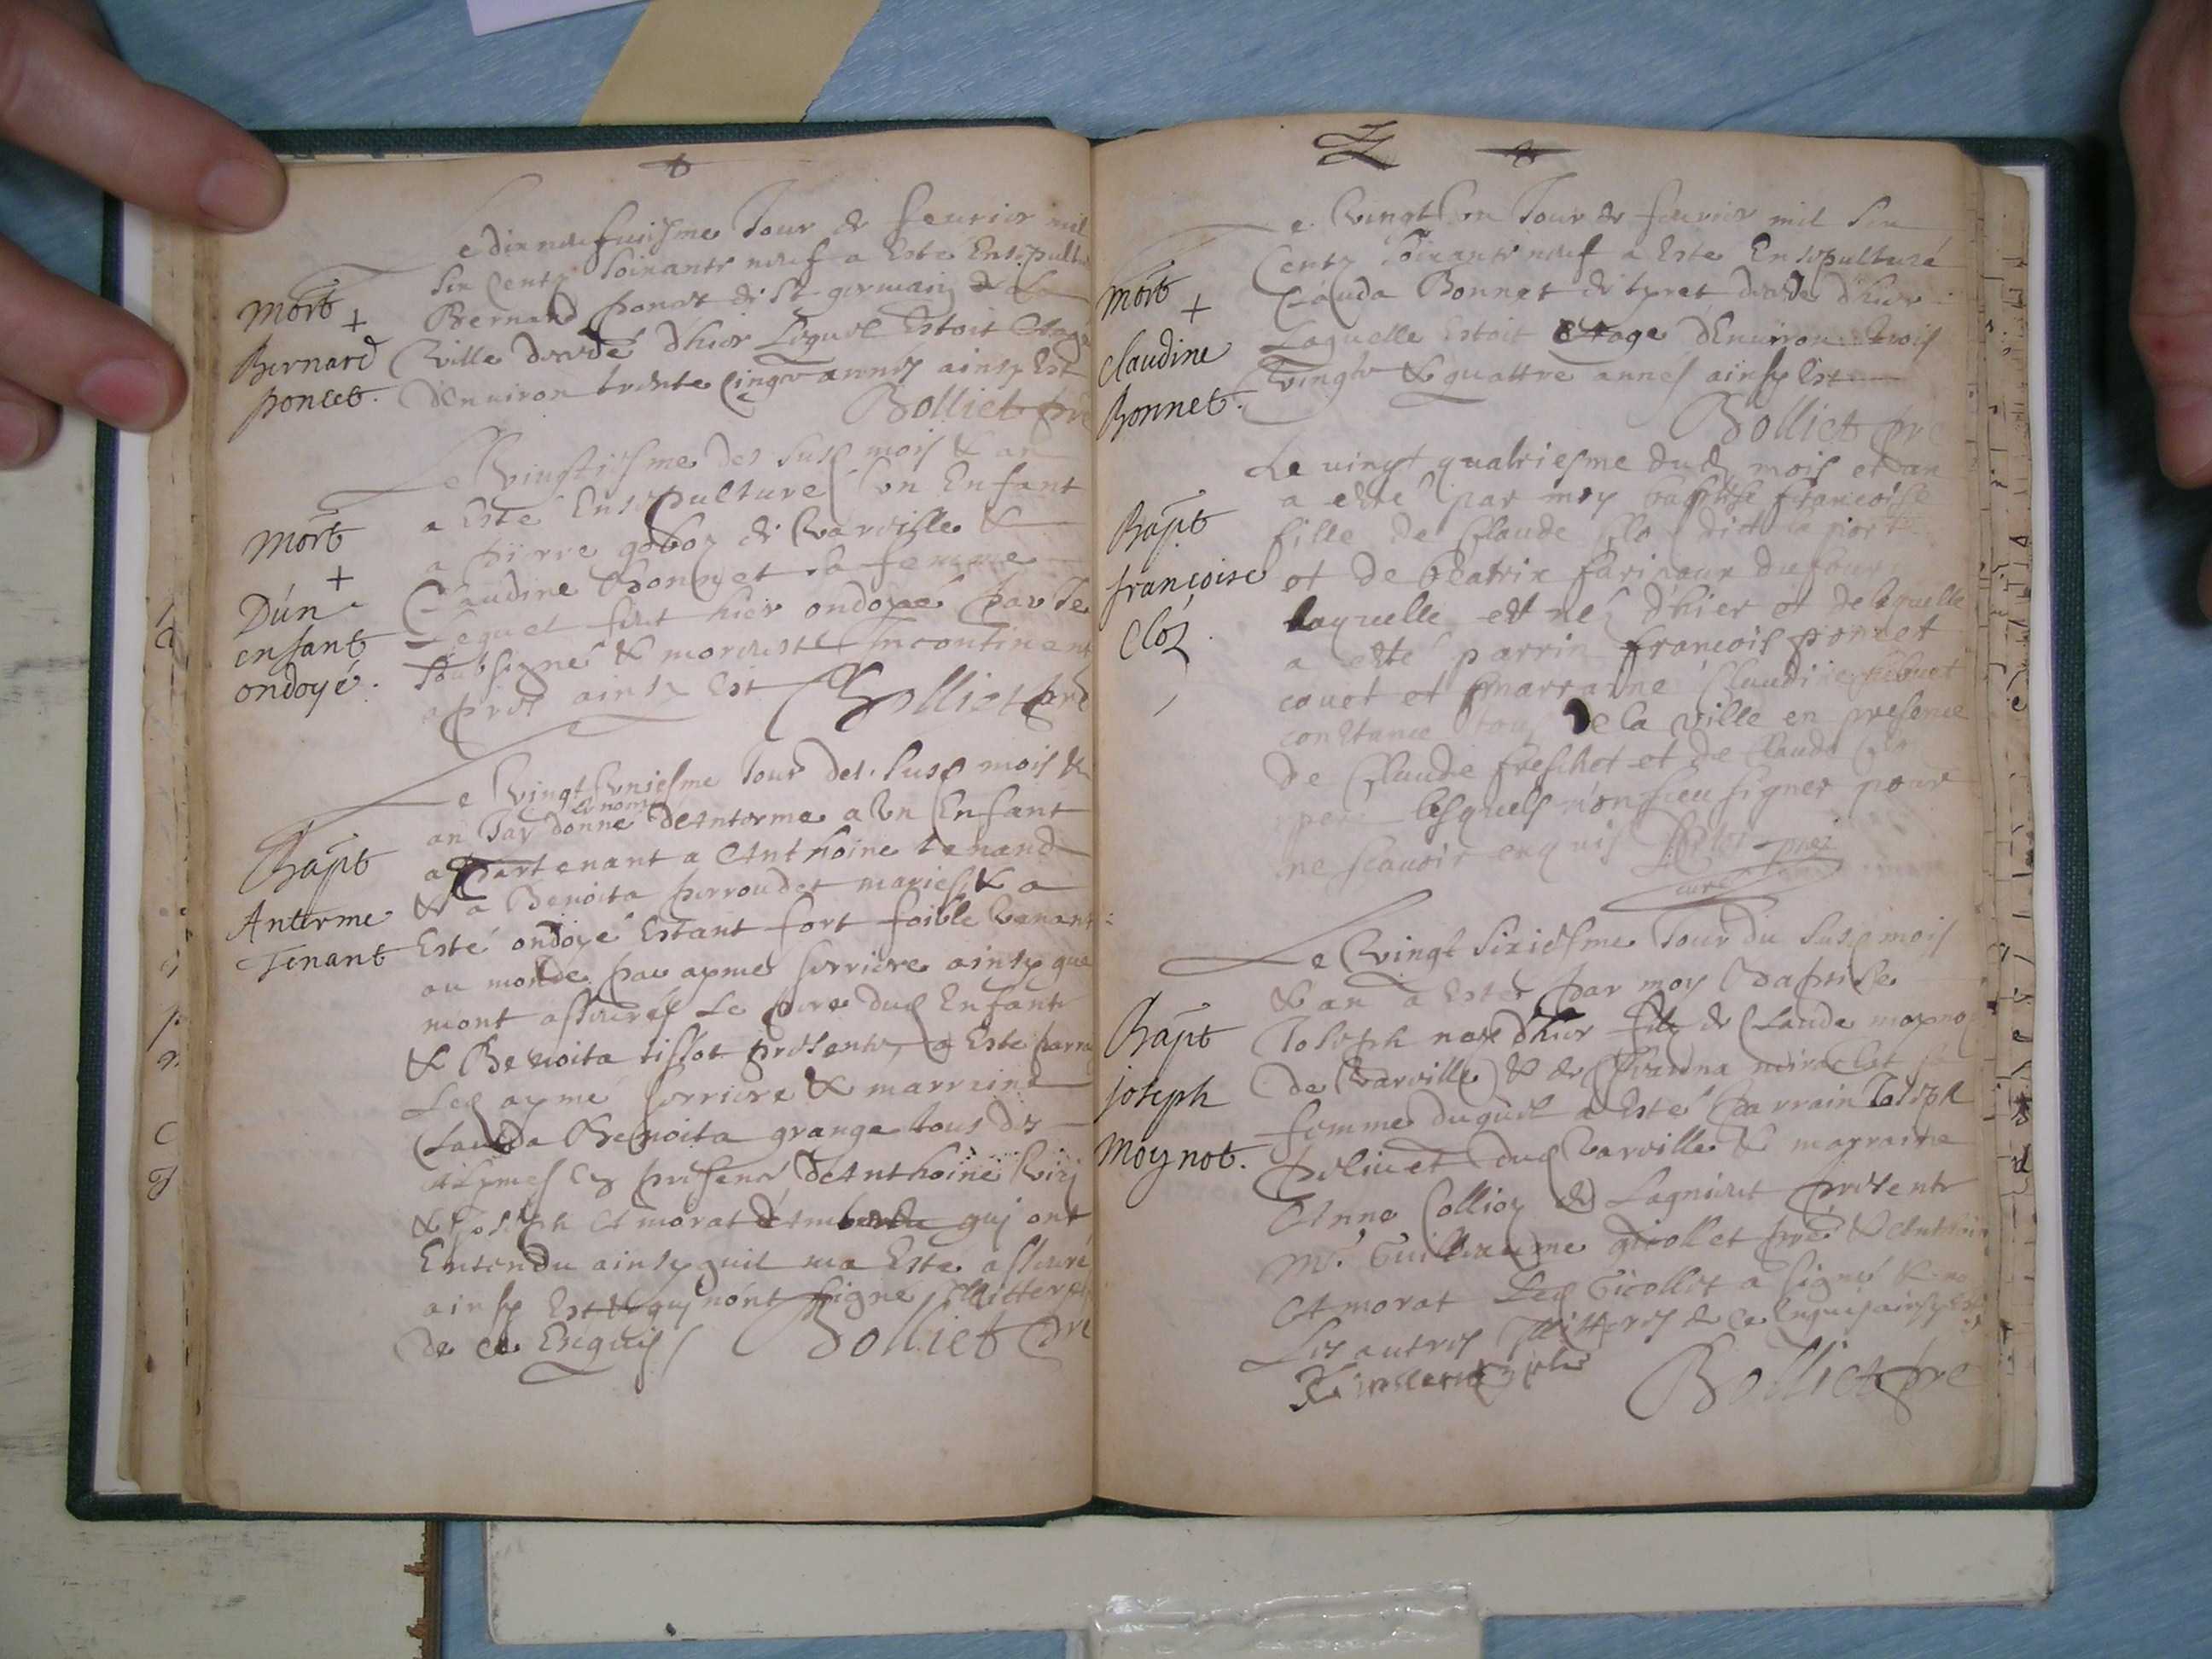 Le dix neufuiesme Jour de feurier mil
six Centz soixante neuf a este Ensepultu
Mort +
Bernard
poncet.
Bernard poncet de St germain de La
Ville decedé d'hier Lequel Estoit Eagé
d'Enuiron trente Cinq annés ainsy Est
Bolliet pre
Mort
+
D'ún
enfant
ondoyé.
Le Vingtiesme des susd mois & an
a Esté Ensepulturé un Enfant
a pierre goboz de Varville &
Claudine Bonnet sa femme
Lequel fut hier ondoyé par Le
soubsigné & mourust Incontinent
apres ainsy Est Bolliet pre
Bapt
Anterme
Tenant
Le Vingt Uniesme Jour des. susd mois &
an Jay donné le nom d'Anterme a Un Enfant
appartenant a Anthoine tenand
& a Benoita perroudet mariés & a
Esté ondoyé Estant fort foible Venant
au monde par ayme ferriere ainsy que
mont assurés Le pere dud Enfant
& Benoita tissot presents, a Este parrain
Led ayme ferriere & marraine
Clauda Benoita grange tous des
Alymes es presence d'Anthoine
& Joseph Amorat d'Amberda qui ont
Entendu ainsy quil ma Este assuré
ainsy Est & qui nónt signé Illitterés
de ce Enquis Bolliet pre
Le Vingt Un Jour de feurier mil six
Centz soixante neuf a Este Ensepulturé
Mort +
Claudine
Bonnet.
Clauda Bonnet de tyret decede d'hier
Laquelle Estoit Eage d'Enuiron trois
Vingts & quattre annes ainsy Est
Bolliet pre
Bapt
françoise
Cloz.
Le vingt quatriesme dud mois et an
a esté par moy baptise françoise
fille de Claude Clo dict la
et de Beatrix farinaux dufour
laquelle est neé d'hier et de laquelle
a esté parrin françois poncet
couet et marrainne Claudine
constance tous de la ville en presence
de Claude freschet et de Claude Clo
pere lesquels n'on sceu signer pour
ne scauoir enquis
Bapt
joseph
Moynot.
Le Vingt sixiesme Jour du susd mois
& an a Este par moy Baptise
Joseph nay d'hier filz de Claude moyno
de Varville & de
femme duquel a Esté parrain Joseph
poliuet dud Varville & marraine
Anne Collioz de Lagnieut presents
Mr. Guillaume gicollet pre & Anthoine
Amorat Led Gicollet a signé & no
Les autres Illitterés de ce Enquis ainsy Est
Bolliet pre